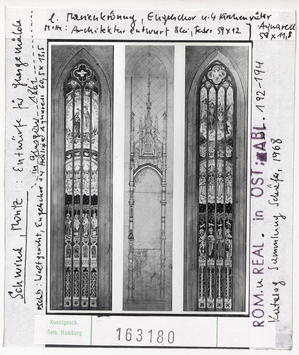 l. Marienkrönung, Engelchor u. 4 Kirchenväter
Mitte: Architektur Entwurf Blei, Feder 59 x 12
Aquarell
58 x 11,8
Schwind, Moritz : Entwürfe für Glasgemälde
in Glasgow - 1861
rechts: Weltgericht, Engelchor u. 4 Aquarell 60,5 x 16,5
ROM. u REAL. in OST: ABL. 192-194
Katalog Sammlung Schäfer, 1968
Kunstgesch.
Sem. Hamburg
163180